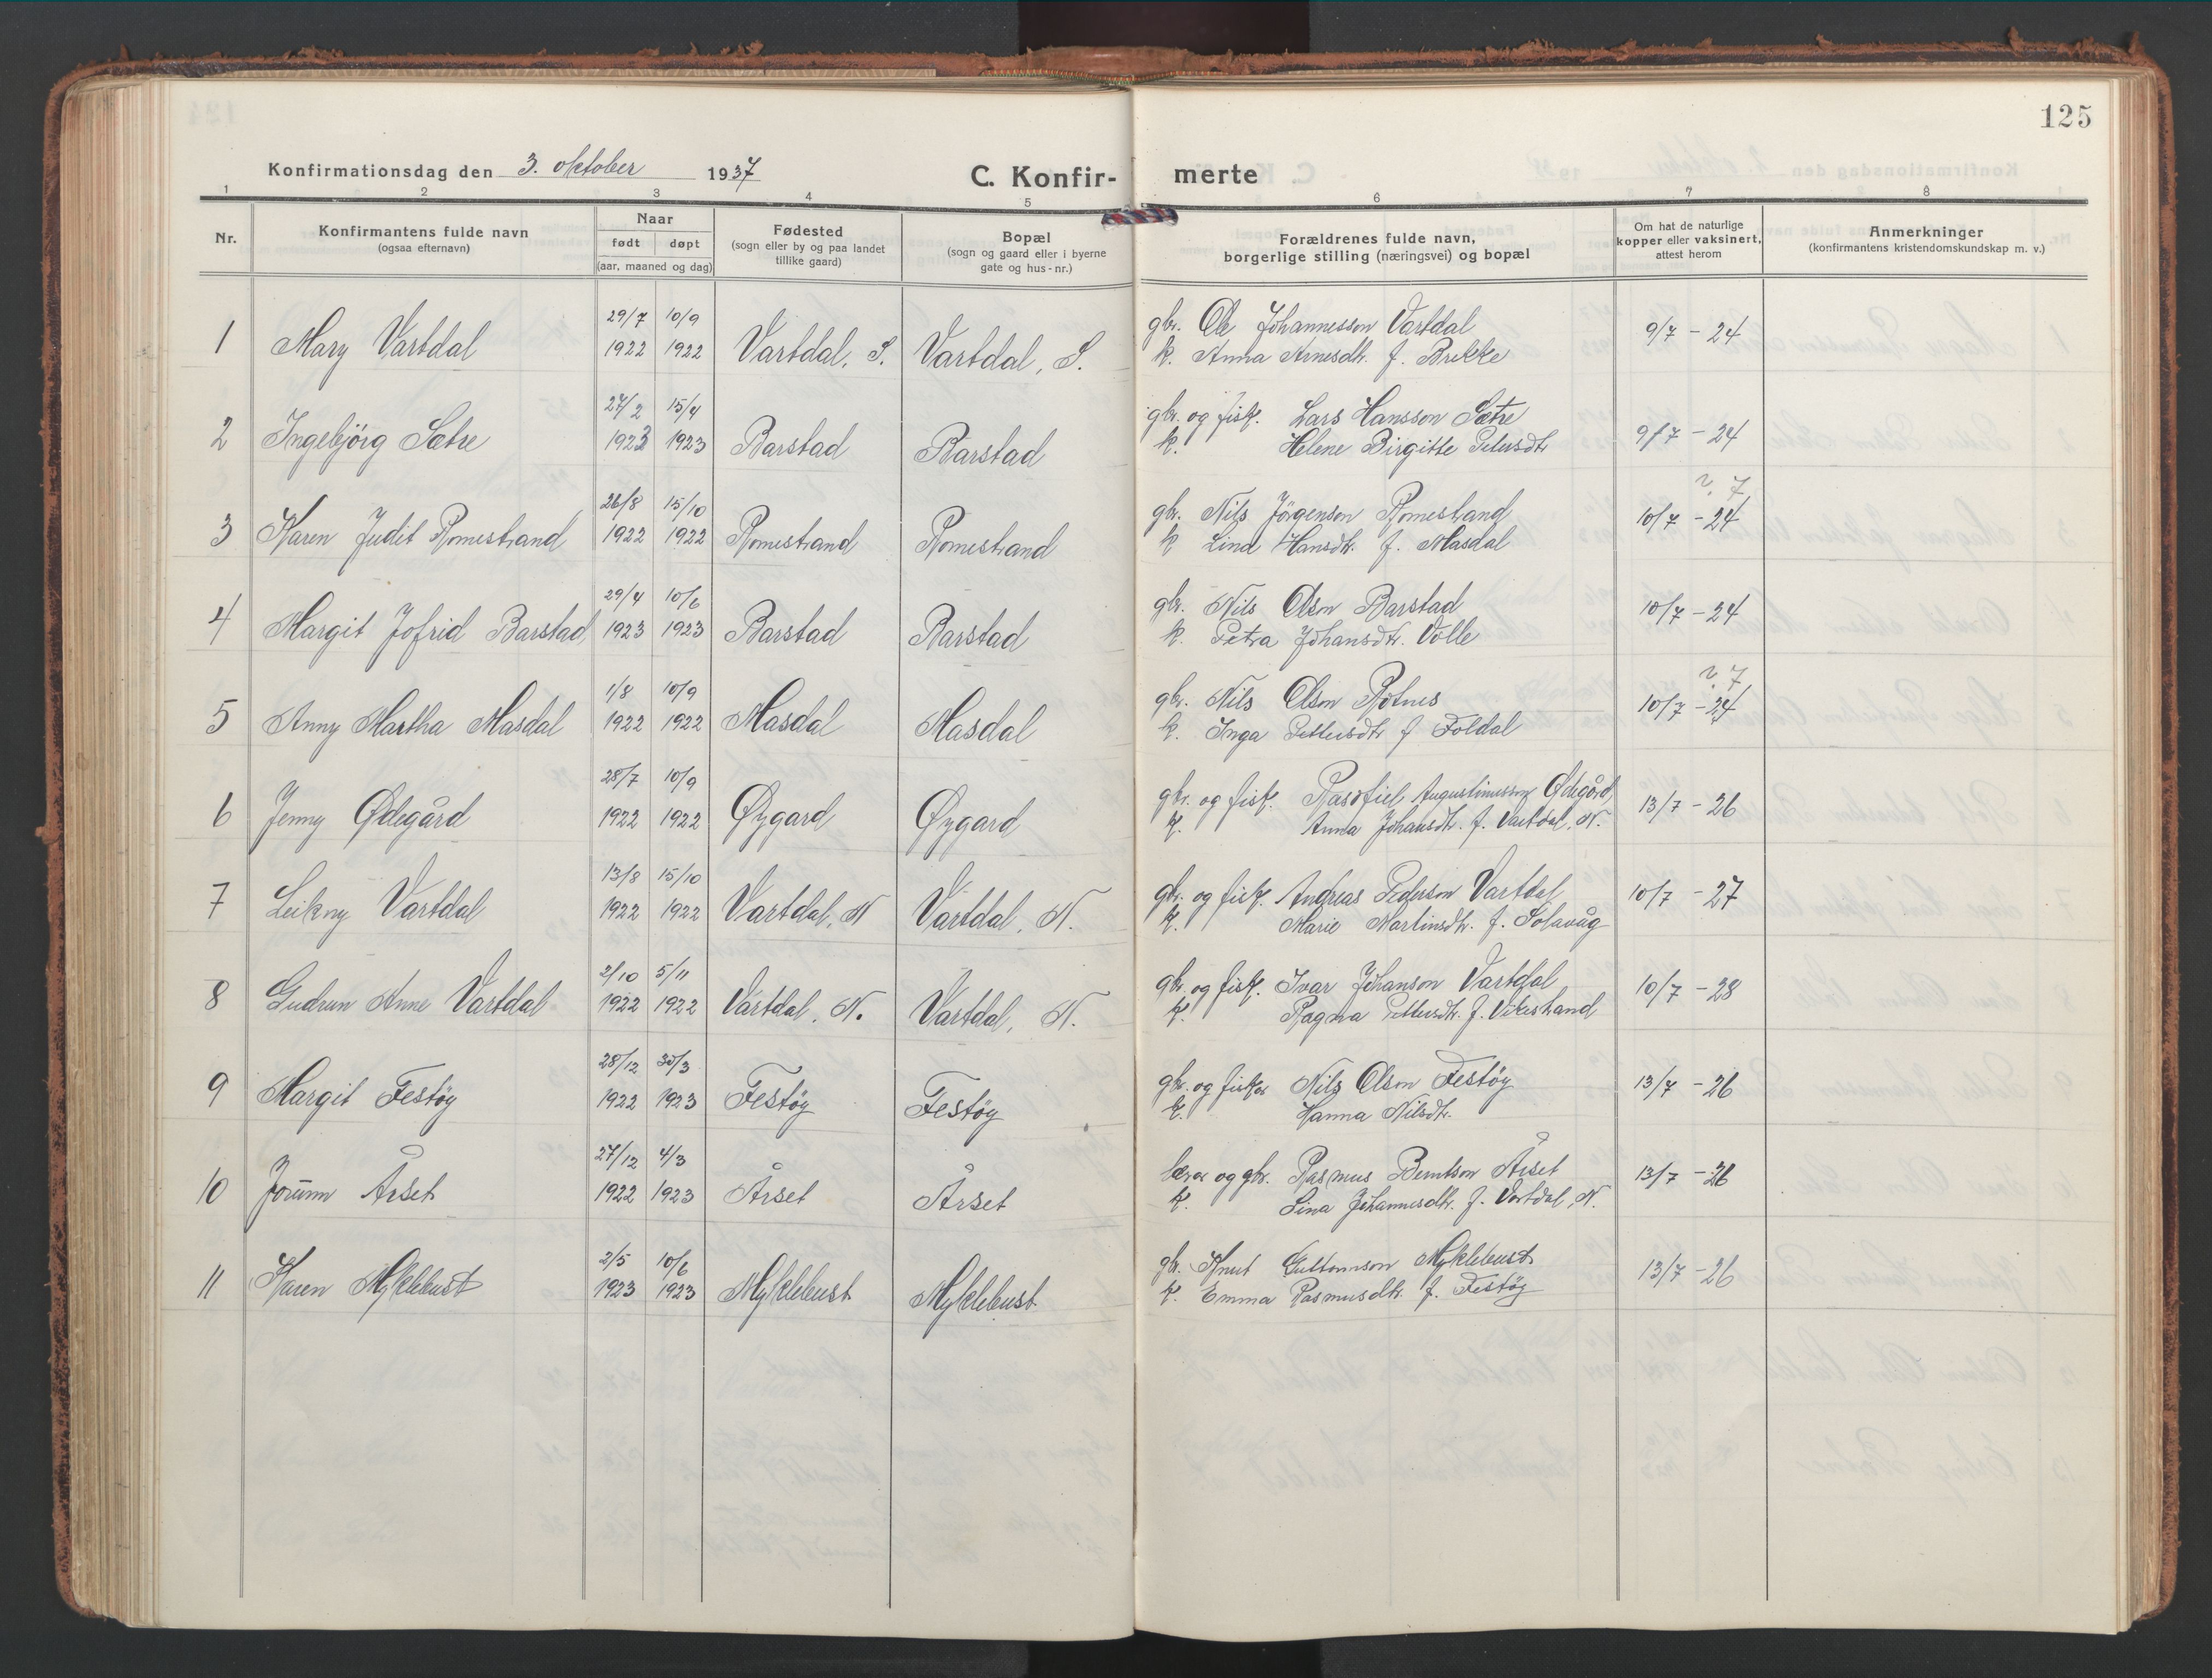 125
Konfirmationsdag den 3. oktober 1937
C. Konfirmerte
1 2 3 4 5 6 7 8
Nr.
Konfirmantens fulde navn
(ogsaa efternavn)
Naar
født døpt
(aar, maaned og dag)
Fødested
(sogn eller by og paa landet
tillike gaard)
Bopæl
(sogn og gaard eller i byerne
gate og hus-nr.)
Forældrenes fulde navn,
borgerlige stilling (næringsvei) og bopæl
Om hat de naturlige
kopper eller vaksinert,
attest herom
Anmerkninger
(konfirmantens kristendomskundskap m. v.)
29/7 10/9 gbr. Ole Johannesson Vartdal
1 Mary Vartdal 1922 1922 Vartdal, S. Vartdal, S. k. Anna Arnesdtr. f. Brekke 9/7 - 24
27/2 15/4 gbr. og fisk. Lars Hansson Sætre
2 Ingebjörg Sætre 1923 1923 Barstad Barstad k. Helene Birgitte Petersdtr 9/7 - 24
26/8 15/10 gbr. Nils Jörgenson Romestrand ? 7
3 Karen Judit Romestrand 1922 1922 Romestrand Romestrand k Lina Hansdtr. f. Masdal 10/7 - 24
29/4 10/6 gbr. Nils Olson Barstad
4 Margit Jofrid Barstad 1923 1923 Barstad Barstad k. Petra Johansdtr. Volle 10/7 - 24
1/8 10/9 gbr. Nils Olson Rotnes ? 7
5 Anny Martha Masdal 1922 1922 Masdal Masdal k. Inga Pettersdtr f Foldal 10/7 - 24
28/7 10/9 gbr. og fisk. Augustinusson Ødegård
6 Jenny Ødegård 1922 1922 Øygard Øygard k. Anna Johansdtr. f. Vartdal, N. 13/7 - 26
13/8 15/10 gbr. og fisk. Andreas Pederson Vartdal
7 Leikny Vartdal 1922 1922 Vartdal, N Vartdal, N. k. Marie Martinsdtr. f. Solavåg 10/7 - 27
2/10 5/11 gbr. og fisk. Ivar Johanson Vartdal
8 Gudrun Anne Vartdal 1922 1922 Vartdal, N. Vartdal, N. k. Ragna Pettersdtr. f. Vikestrand 10/7 - 28
28/12 30/3 gbr. og fisker Nils Olson Festöy
9 Margit Festöy 1922 1923 Festöy Festöy k. Hanna Nilsdtr. 13/7 - 26
27/12 4/3 lærer og gbr. Rasmus Berntson Årset
10 Jorunn Årset 1922 1923 Årset Årset k. Lina Johannesdtr. f. Vartdal, N. 13/7 - 26
2/5 10/6 gbr. Knut Guttormson Myklebust
11 Karen Myklebust 1923 1923 Myklebust Myklebust k. Emma Rasmusdtr. f. Festöy 13/7 - 26